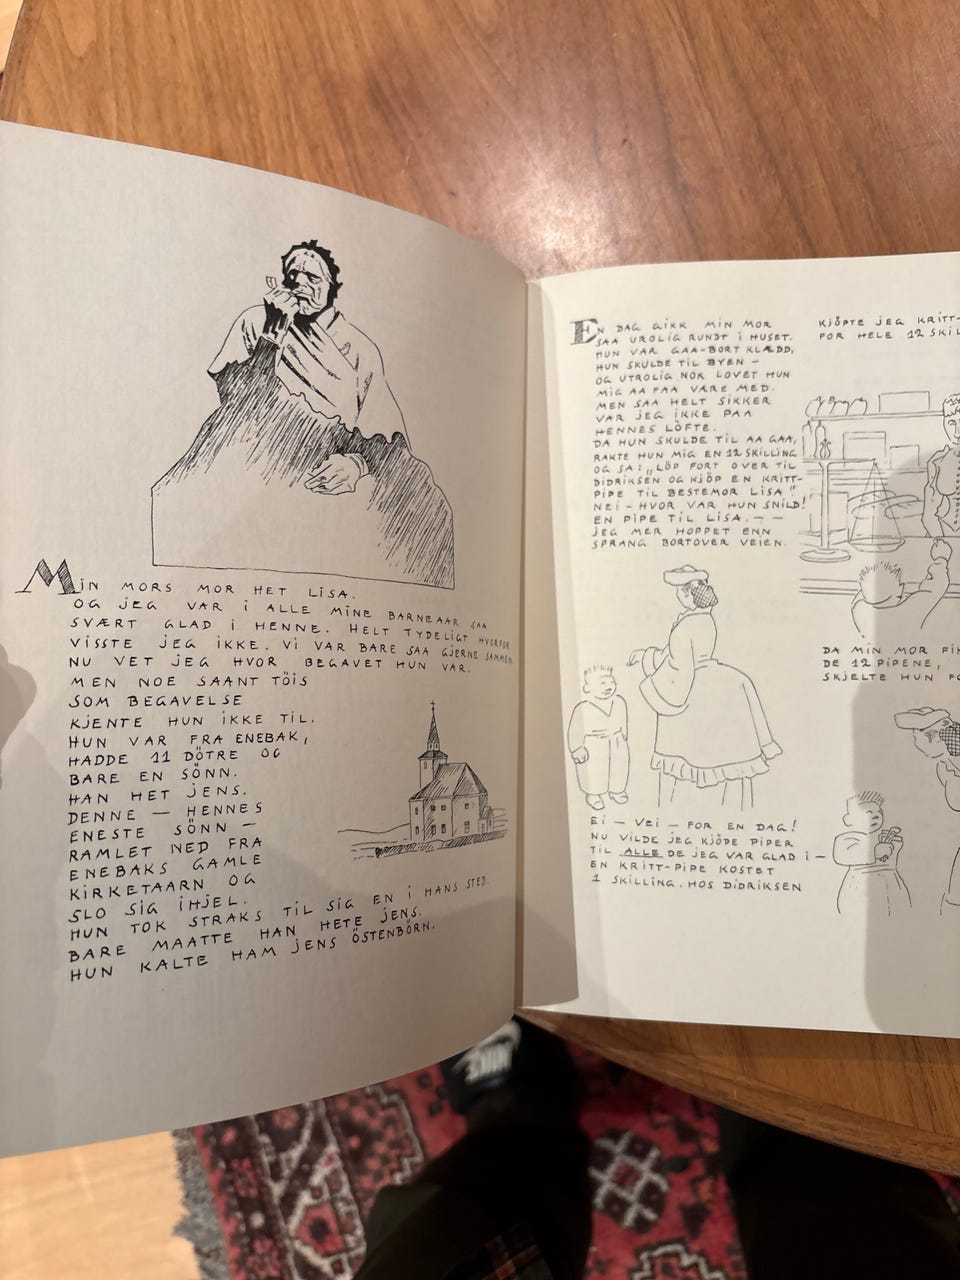 MIN MORS MOR HET LISA.
OG JEG VAR I ALLE MINE BARNEAAR SAA
SVÆRT GLAD I HENNE. HELT TYDELIGT HVORFOR
VISSTE JEG IKKE. VI VAR BARE SAA GJERNE SAMMEN
NU VET JEG HVOR BEGAVET HUN VAR.
MEN NOE SAANT TÖIS
SOM BEGAVELSE
KJENTE HUN IKKE TIL.
HUN VAR FRA ENEBAK,
HADDE 11 DÖTRE OG
BARE EN SÖNN.
HAN HET JENS.
DENNE — HENNES
ENESTE SÖNN —
RAMLET NED FRA
ENEBAKS GAMLE
KIRKETAARN OG
SLO SIG IHJEL.
HUN TOK STRAKS TIL SIG EN I HANS STED.
BARE MAATTE HAN HETE JENS.
HUN KALTE HAM JENS ÖSTENBÖRN.
EN DAG GIKK MIN MOR
SAA UROLIG RUNDT I HUSET.
HUN VAR GAA-BORT KLÆDD,
HUN SKULDE TIL BYEN —
OG UTROLIG NOK LOVET HUN
MIG AA FAA VÆRE MED.
MEN SAA HELT SIKKER
VAR JEG IKKE PAA
HENNES LÖFTE.
DA HUN SKULDE TIL AA GAA,
RAKTE HUN MIG EN 12 SKILLING
OG SA: „LÖP FORT OVER TIL
DIDRIKSEN OG KJÖP EN KRITT-
PIPE TIL BESTEMOR LISA."
NEI - HVOR VAR HUN SNILD!
EN PIPE TIL LISA. — —
JEG MER HOPPET ENN
SPRANG BORTOVER VEIEN.
EI — VEI — FOR EN DAG!
NU VILDE JEG KJÖPE PIPER
TIL ALLE DE JEG VAR GLAD I —
EN KRITT-PIPE KOSTET
1 SKILLING. HOS DIDRIKSEN
KJÖPTE JEG KRITT-
FOR HELE 12 SKIL
DA MIN MOR FIK
DE 12 PIPENE,
SKJELTE HUN
NIKE